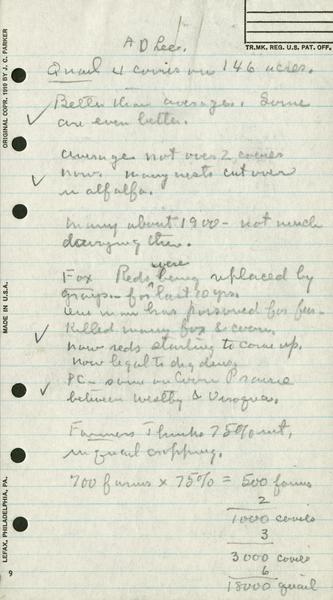 TR.MK. REG. U.S. PAT. OFF.
ORIGINAL COPR. 1910 BY J. C. PARKER
A D Lee.
Quail 4 covies on 146 acres.
Better than average. Some
are even better.
average not over 2 covies
now. Many nests cut over
in alfalfa.
Many about 1900 - not much
during then.
were
Fox Reds being replaced by
grays - for last 10 yrs.
One man has poisoned for fur -
Killed many fox & coon.
now reds starting to come up.
now legal to dig dens.
PC - some on Coon Prairie
between Westby & Viroqua.
Farmers Thinks 75% int.
in quail cropping.
700 farms x 75% = 500 farms
2
1000 covies
3
3000 covies
6
18000 quail
MADE IN U.S.A.
LEFAX, PHILADELPHIA, PA.
9